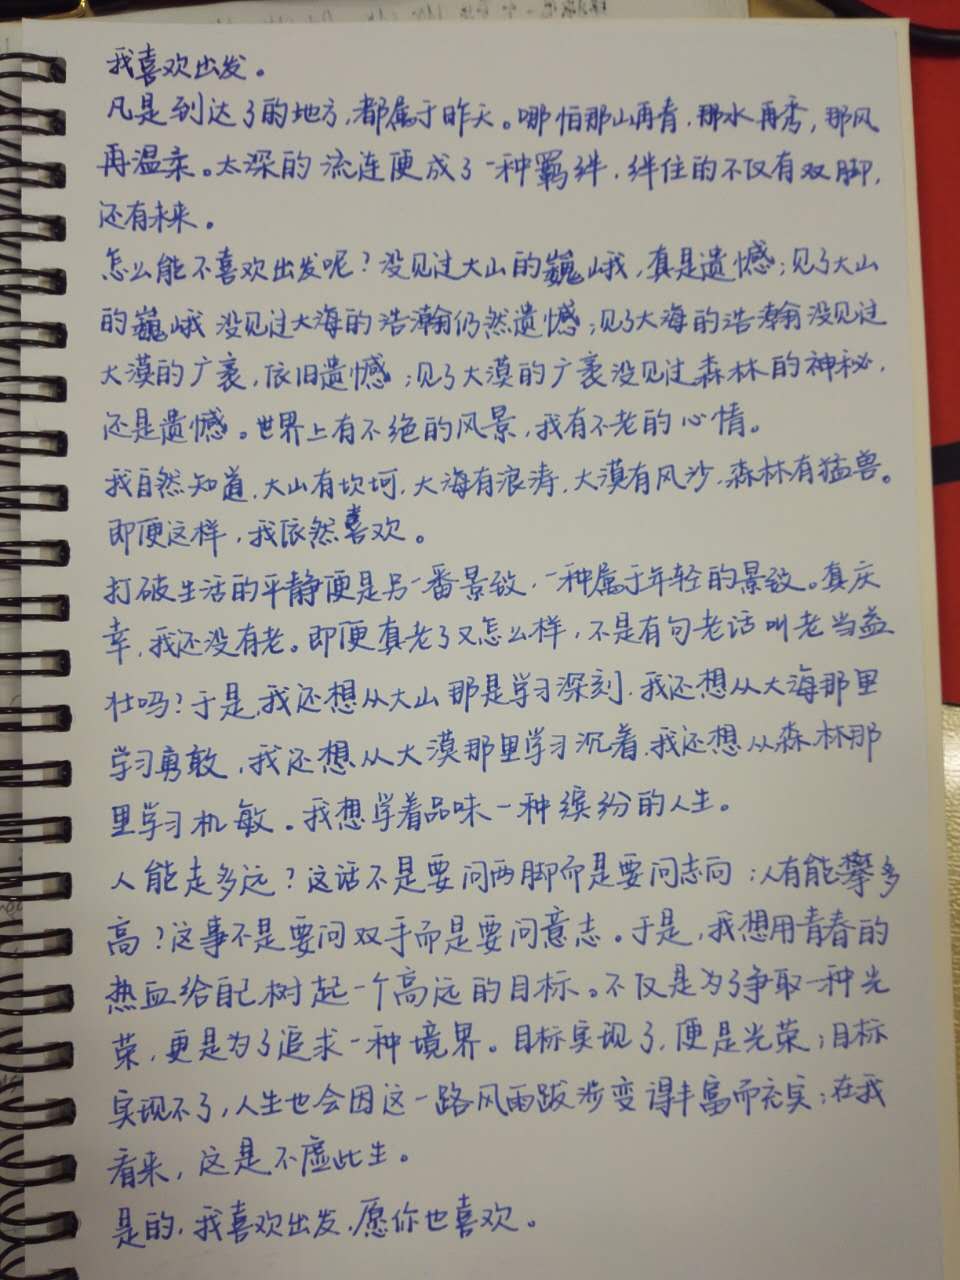 我喜欢出发。
凡是到达了的地方,都属于昨天。哪怕那山再青,那水再秀,那风
再温柔。太深的流连便成了一种羁绊,绊住的不仅有双脚,
还有未来。
怎么能不喜欢出发呢?没见过大山的巍峨,真是遗憾;见了大山
的巍峨没见过大海的浩瀚仍然遗憾;见了大海的浩瀚没见过
大漠的广袤,依旧遗憾;见了大漠的广袤没见过森林的神秘,
还是遗憾。世界上有不绝的风景,我有不老的心情。
我自然知道,大山有坎坷,大海有浪涛,大漠有风沙,森林有猛兽。
即便这样,我依然喜欢。
打破生活的平静便是另一番景致,一种属于年轻的景致。真庆
幸,我还没有老。即便真老了又怎么样,不是有句老话叫老当益
壮吗?于是,我还想从大山那是学习深刻,我还想从大海那里
学习勇敢,我还想从大漠那里学习沉着,我还想从森林那
里学习机敏。我想学着品味一种缤纷的人生。
人能走多远?这话不是要问两脚而是要问志向;人有能攀多
高?这事不是要问双手而是要问意志。于是,我想用青春的
热血给自己树起一个高远的目标。不仅是为了争取一种光
荣,更是为了追求一种境界。目标实现了,便是光荣;目标
实现不了,人生也会因这一路风雨跋涉变得丰富而充实;在我
看来,这是不虚此生。
是的,我喜欢出发,愿你也喜欢。